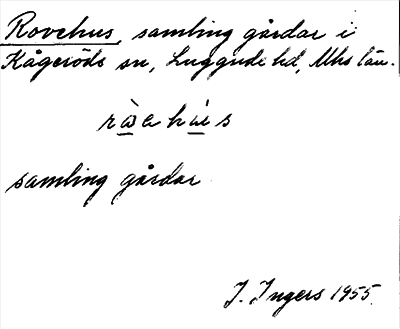 Rovehus, samling gårdar i
Kågeröds sn, Luggude hd, Mhs län.
samling gårdar
I. Ingers 1955.